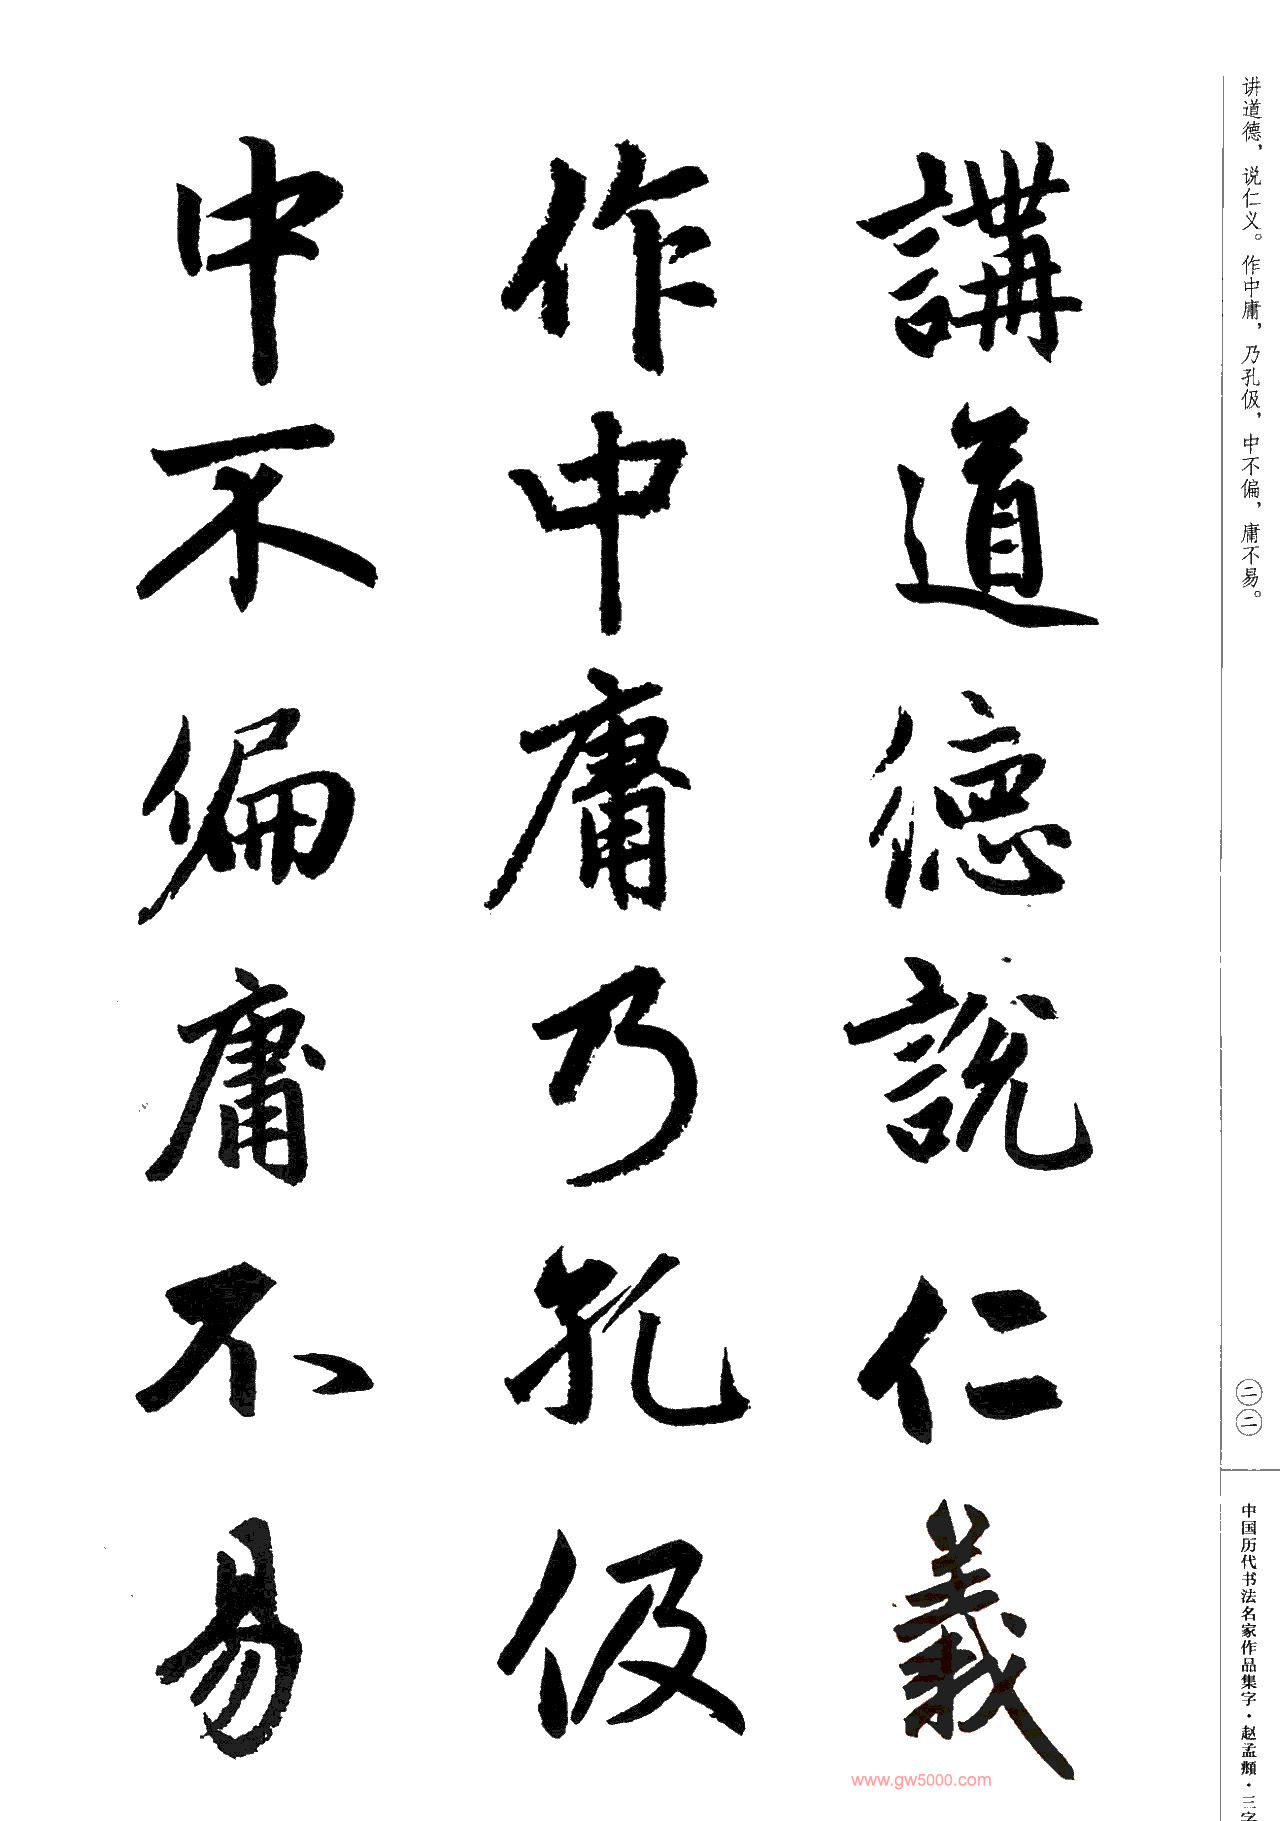 讲道德，说仁义。作中庸，乃孔伋，中不偏，庸不易。
講道德説仁義
作中庸乃孔伋
中不偏庸不易
二二
中国历代书法名家作品集字·赵孟頫·三字
www.gw5000.com